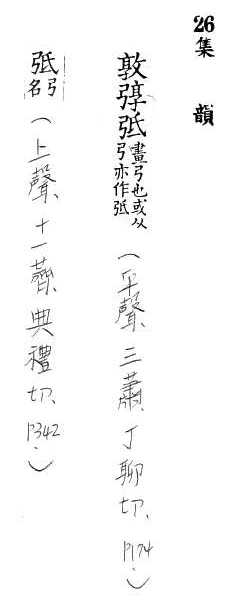 26 集韻
敦弴弤 畫弓也或从弓亦作弤(平聲、三蕭、丁聊切、P174)
弤 弓名(上聲、十一薺、典禮切、P342.)